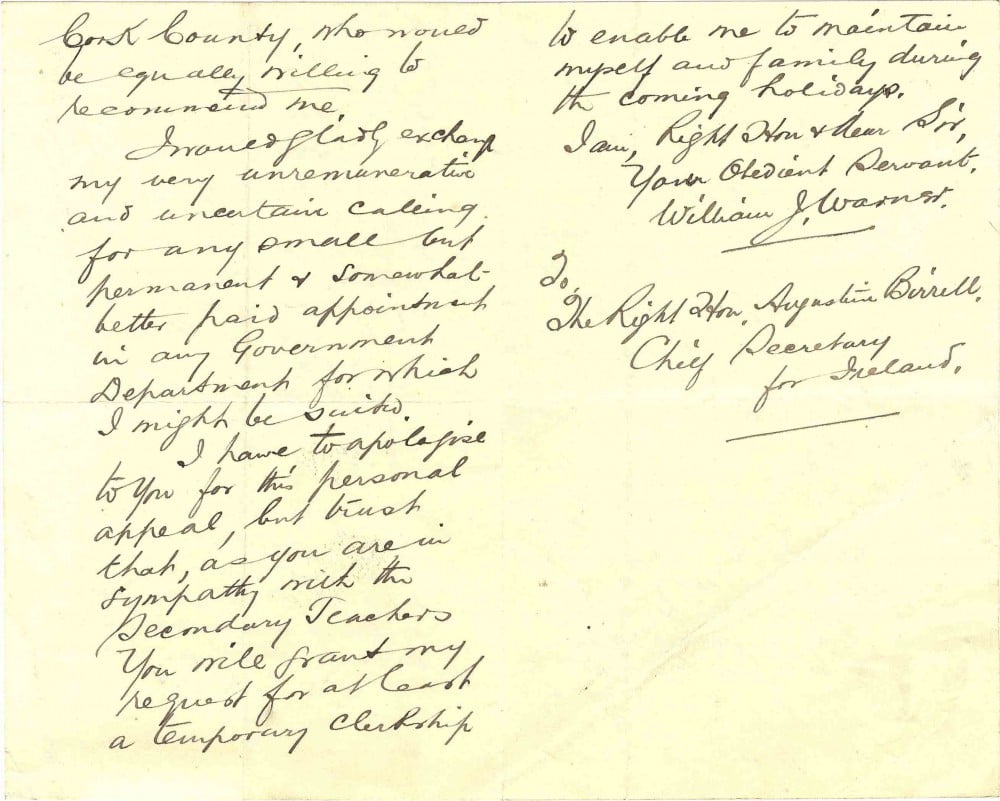 Cork County, who would
be equally willing to
recommend me.
I would gladly exchange
my very unremunerative
and uncertain calling
for any small but
permanent & somewhat
better paid appointment
in any Government
Department for which
I might be suited.
I have to apologise
to You for this personal
appeal, but trust
that, as you are in
sympathy with the
Secondary Teachers
You will grant my
request for at least
a temporary Clerkship
to enable me to maintain
myself and family during
the coming holidays.
I am, Right Hon & dear Sir,
Your Obedient Servant,
William J. Warner.
To,
The Right Hon. Augustine Birrell,
Chief Secretary
for Ireland.